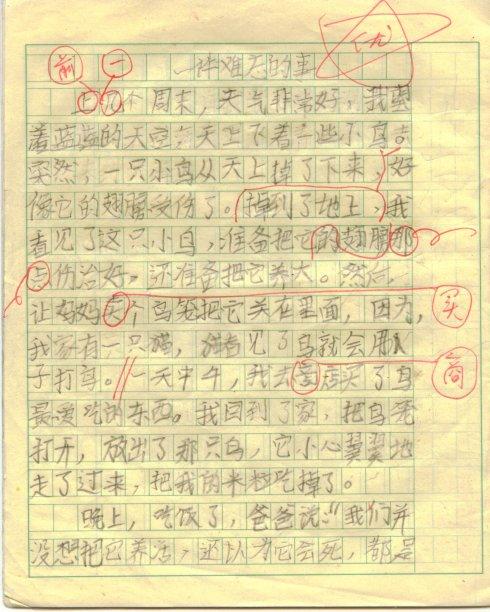 前 一 优
一件难忘的事
上个周末，天气非常好，我望
着蓝蓝的天空，天上飞着一些小鸟。
突然，一只小鸟从天上掉了下来，好
像它的翅膀受伤了。掉到了地上，我
看见了这只小鸟，准备把它的翅膀那
点伤治好，还准备把它养大。然后，
让妈妈卖个鸟笼把它关在里面，因为， 买
我家有一只猫，猫看见了鸟就会用爪
子打鸟。一天中午，我去店买了鸟 商
最爱吃的东西。我回到了家，把鸟笼
打开，放出了那只鸟，它小心翼翼地
走了过来，把我的米粒吃掉了。
晚上，吃饭了，爸爸说：“我们并
没想把它养活，还以为它会死，都是